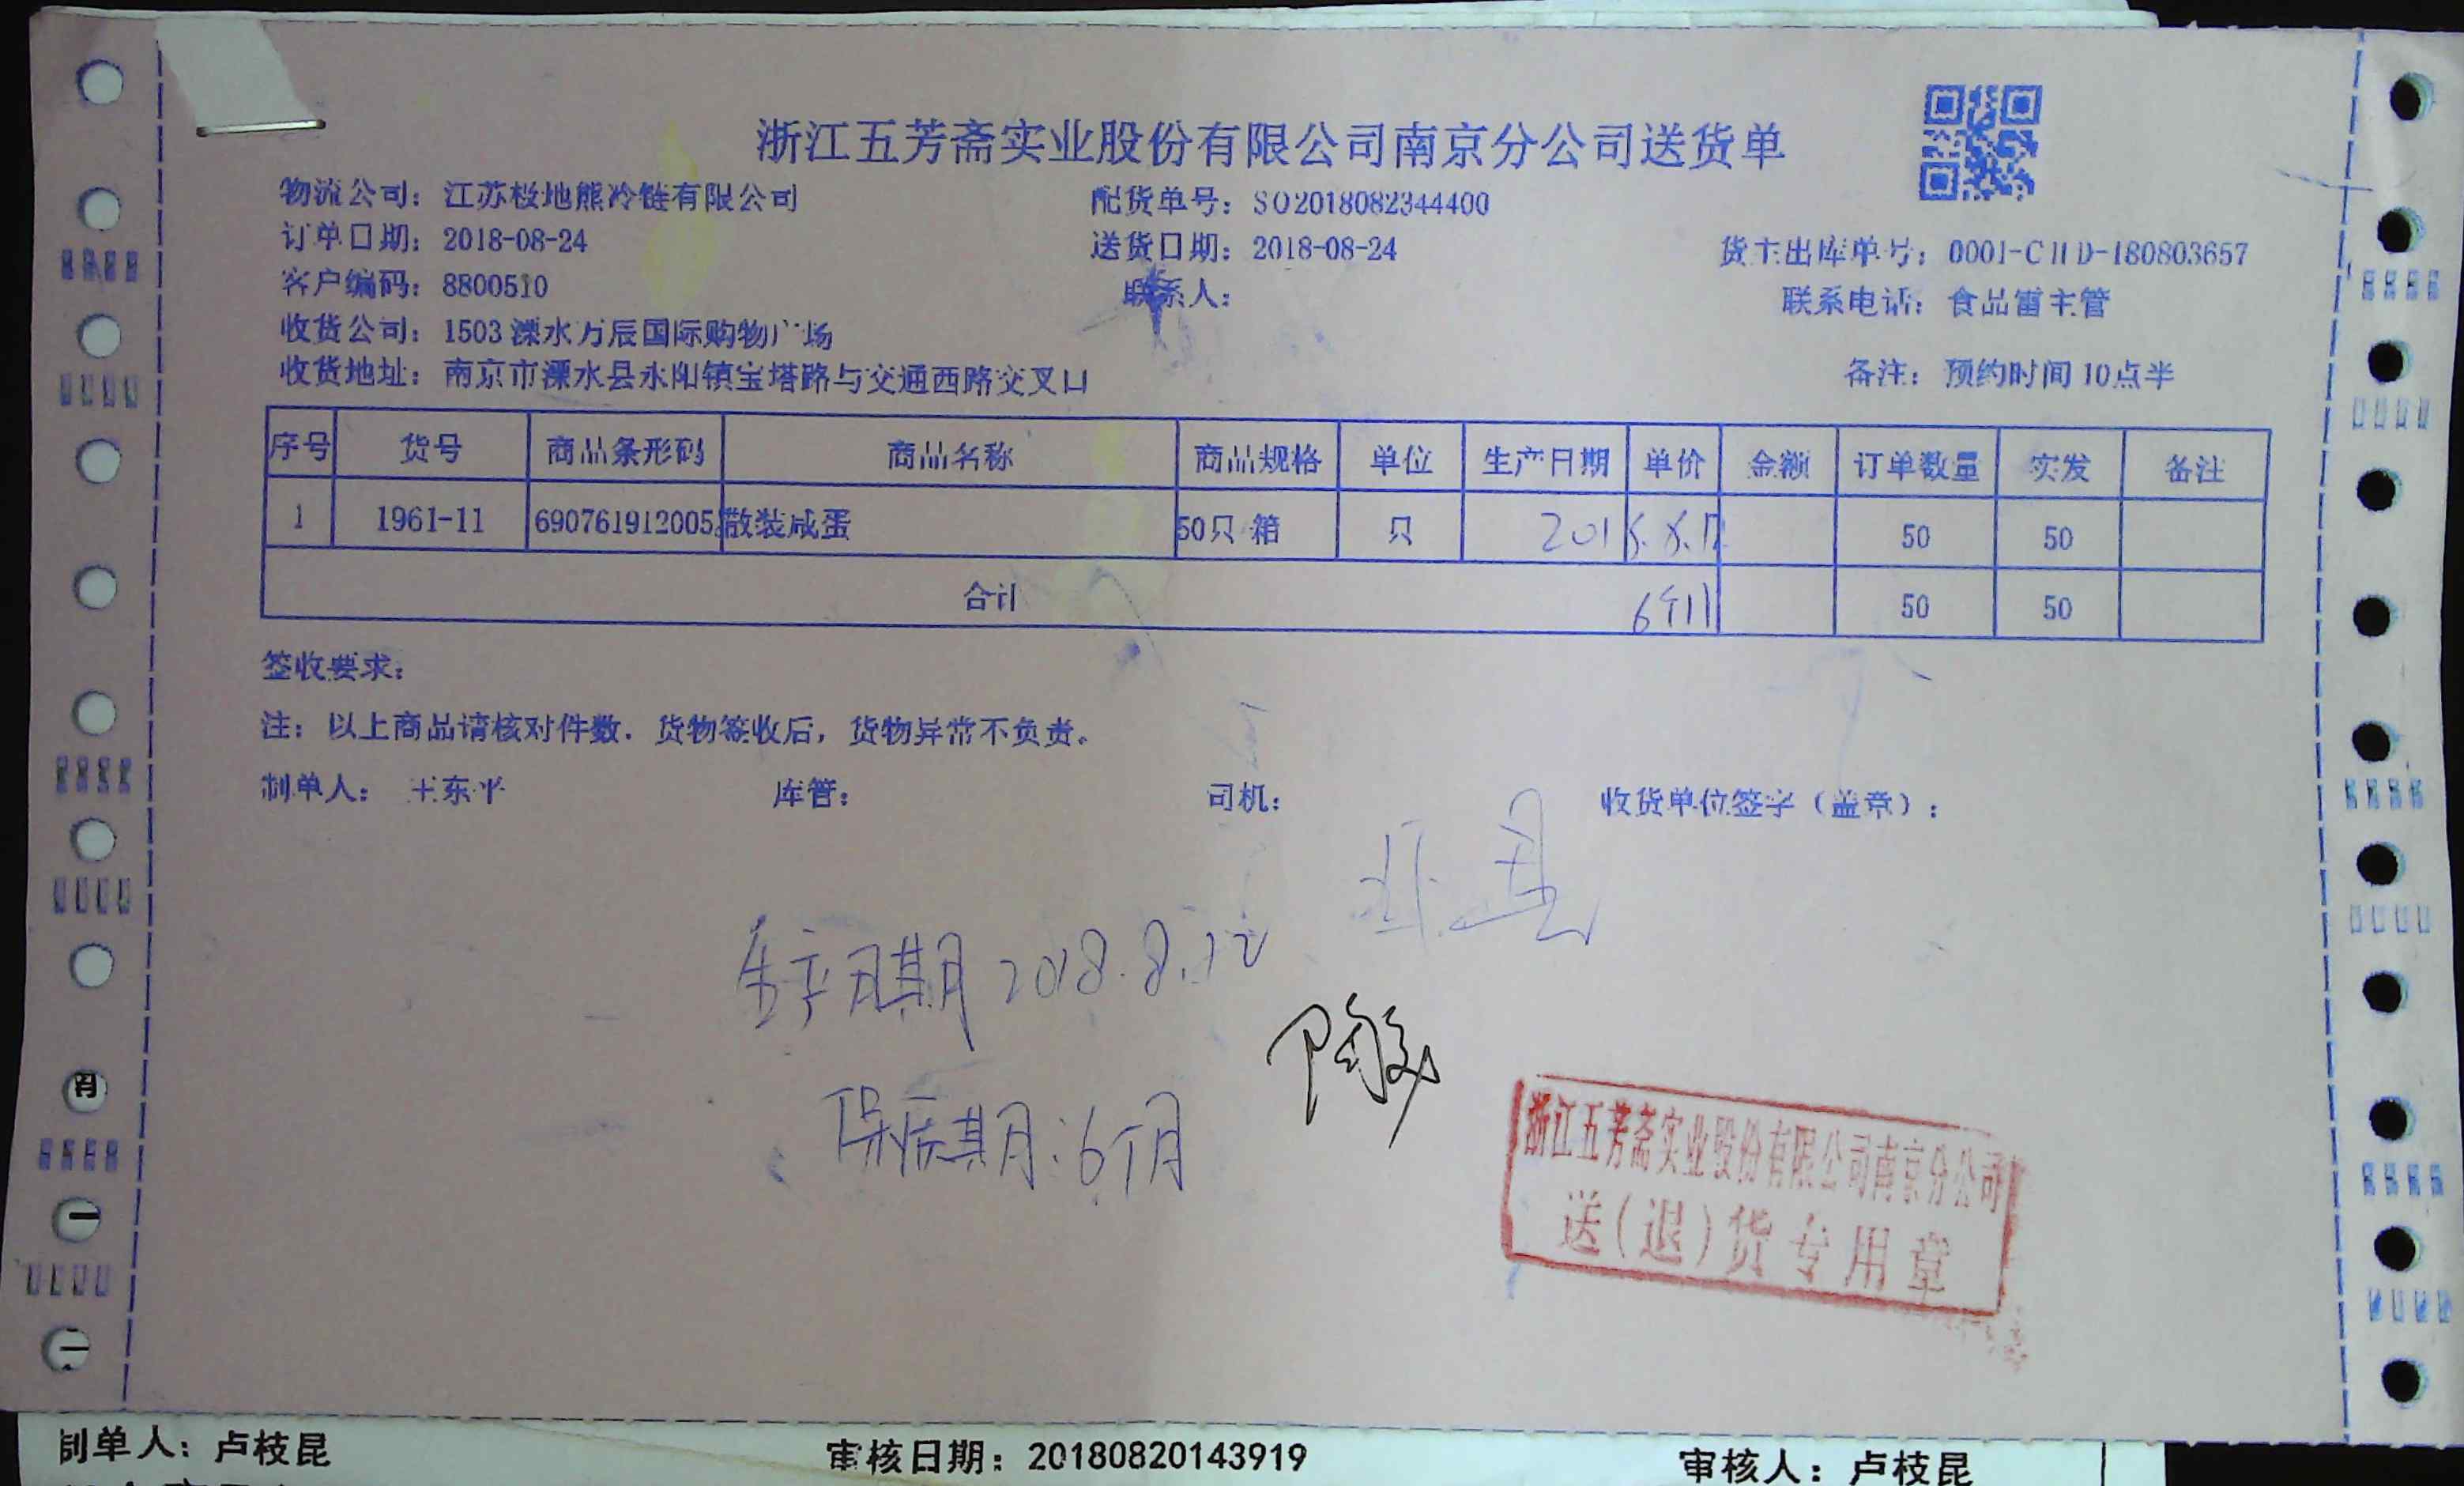 浙江五芳斋实业股份有限公司南京分公司送货单
物流公司：江苏极地熊冷链有限公司 配货单号：SO2018082344400
订单日期：2018-08-24 送货日期：2018-08-24 货主出库单号：0001-CHD-180803657
客户编码：8800510 联系人： 联系电话：食品雷主管
收货公司：1503溧水万辰国际购物广场
收货地址：南京市溧水县永阳镇宝塔路与交通西路交叉口 备注：预约时间10点半
序号 货号 商品条形码 商品名称 商品规格 单位 生产日期 单价 金额 订单数量 实发 备注
1 1961-11 690761912005 散装咸蛋 50只/箱 只 2018.8.12 50 50
合计 6个月 50 50
签收要求：
注：以上商品请核对件数．货物签收后，货物异常不负责。
制单人：王东平 库管： 司机： 收货单位签字（盖章）：
生产日期 2018.8.12
保质期：6个月
浙江五芳斋实业股份有限公司南京分公司
送（退）货专用章
制单人：卢枝昆 审核日期：20180820143919 审核人：卢枝昆